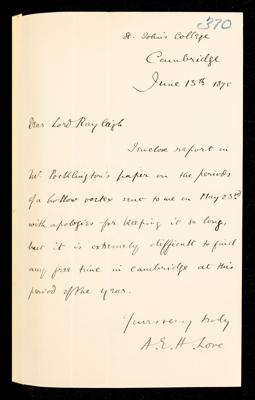 370
St. John's College
Cambridge
June 13th 1895
Dear Lord Rayleigh
I enclose report on
Mr Pocklington's paper on the periods
of a hollow vortex sent to me on May 23rd
with apologies for keeping it so long,
but it is extremely difficult to find
any free time in Cambridge at this
period of the year.
Yours very truly
A. E. H. Love